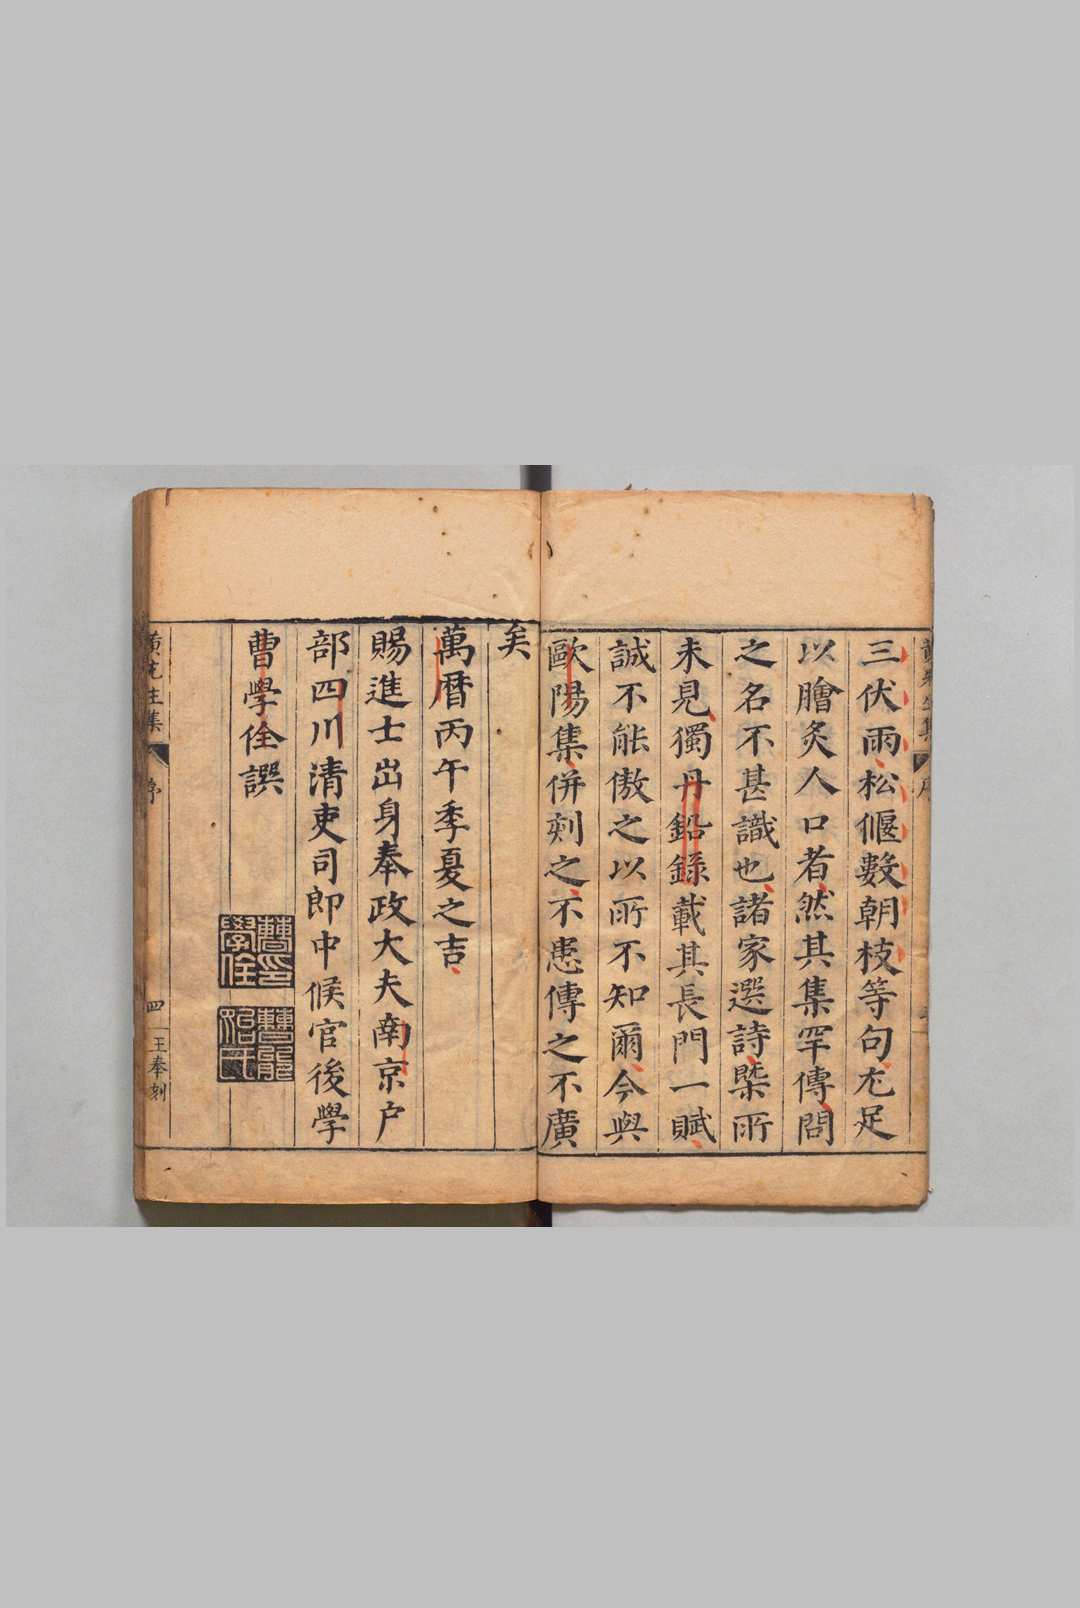 三伏雨松偃數朝枝等句尤足
以膾炙人口者然其集罕傳問
之名不甚識也諸家選詩槩所
未見獨丹鉛錄載其長門一賦
誠不能傲之以所不知爾今與
歐陽集併刻之不患傳之不廣
矣
萬曆丙午季夏之吉
賜進士出身奉政大夫南京户
部四川清吏司郎中候官後學
曹學佺譔
曹印學佺
曹能始氏
序
四
王奉刻